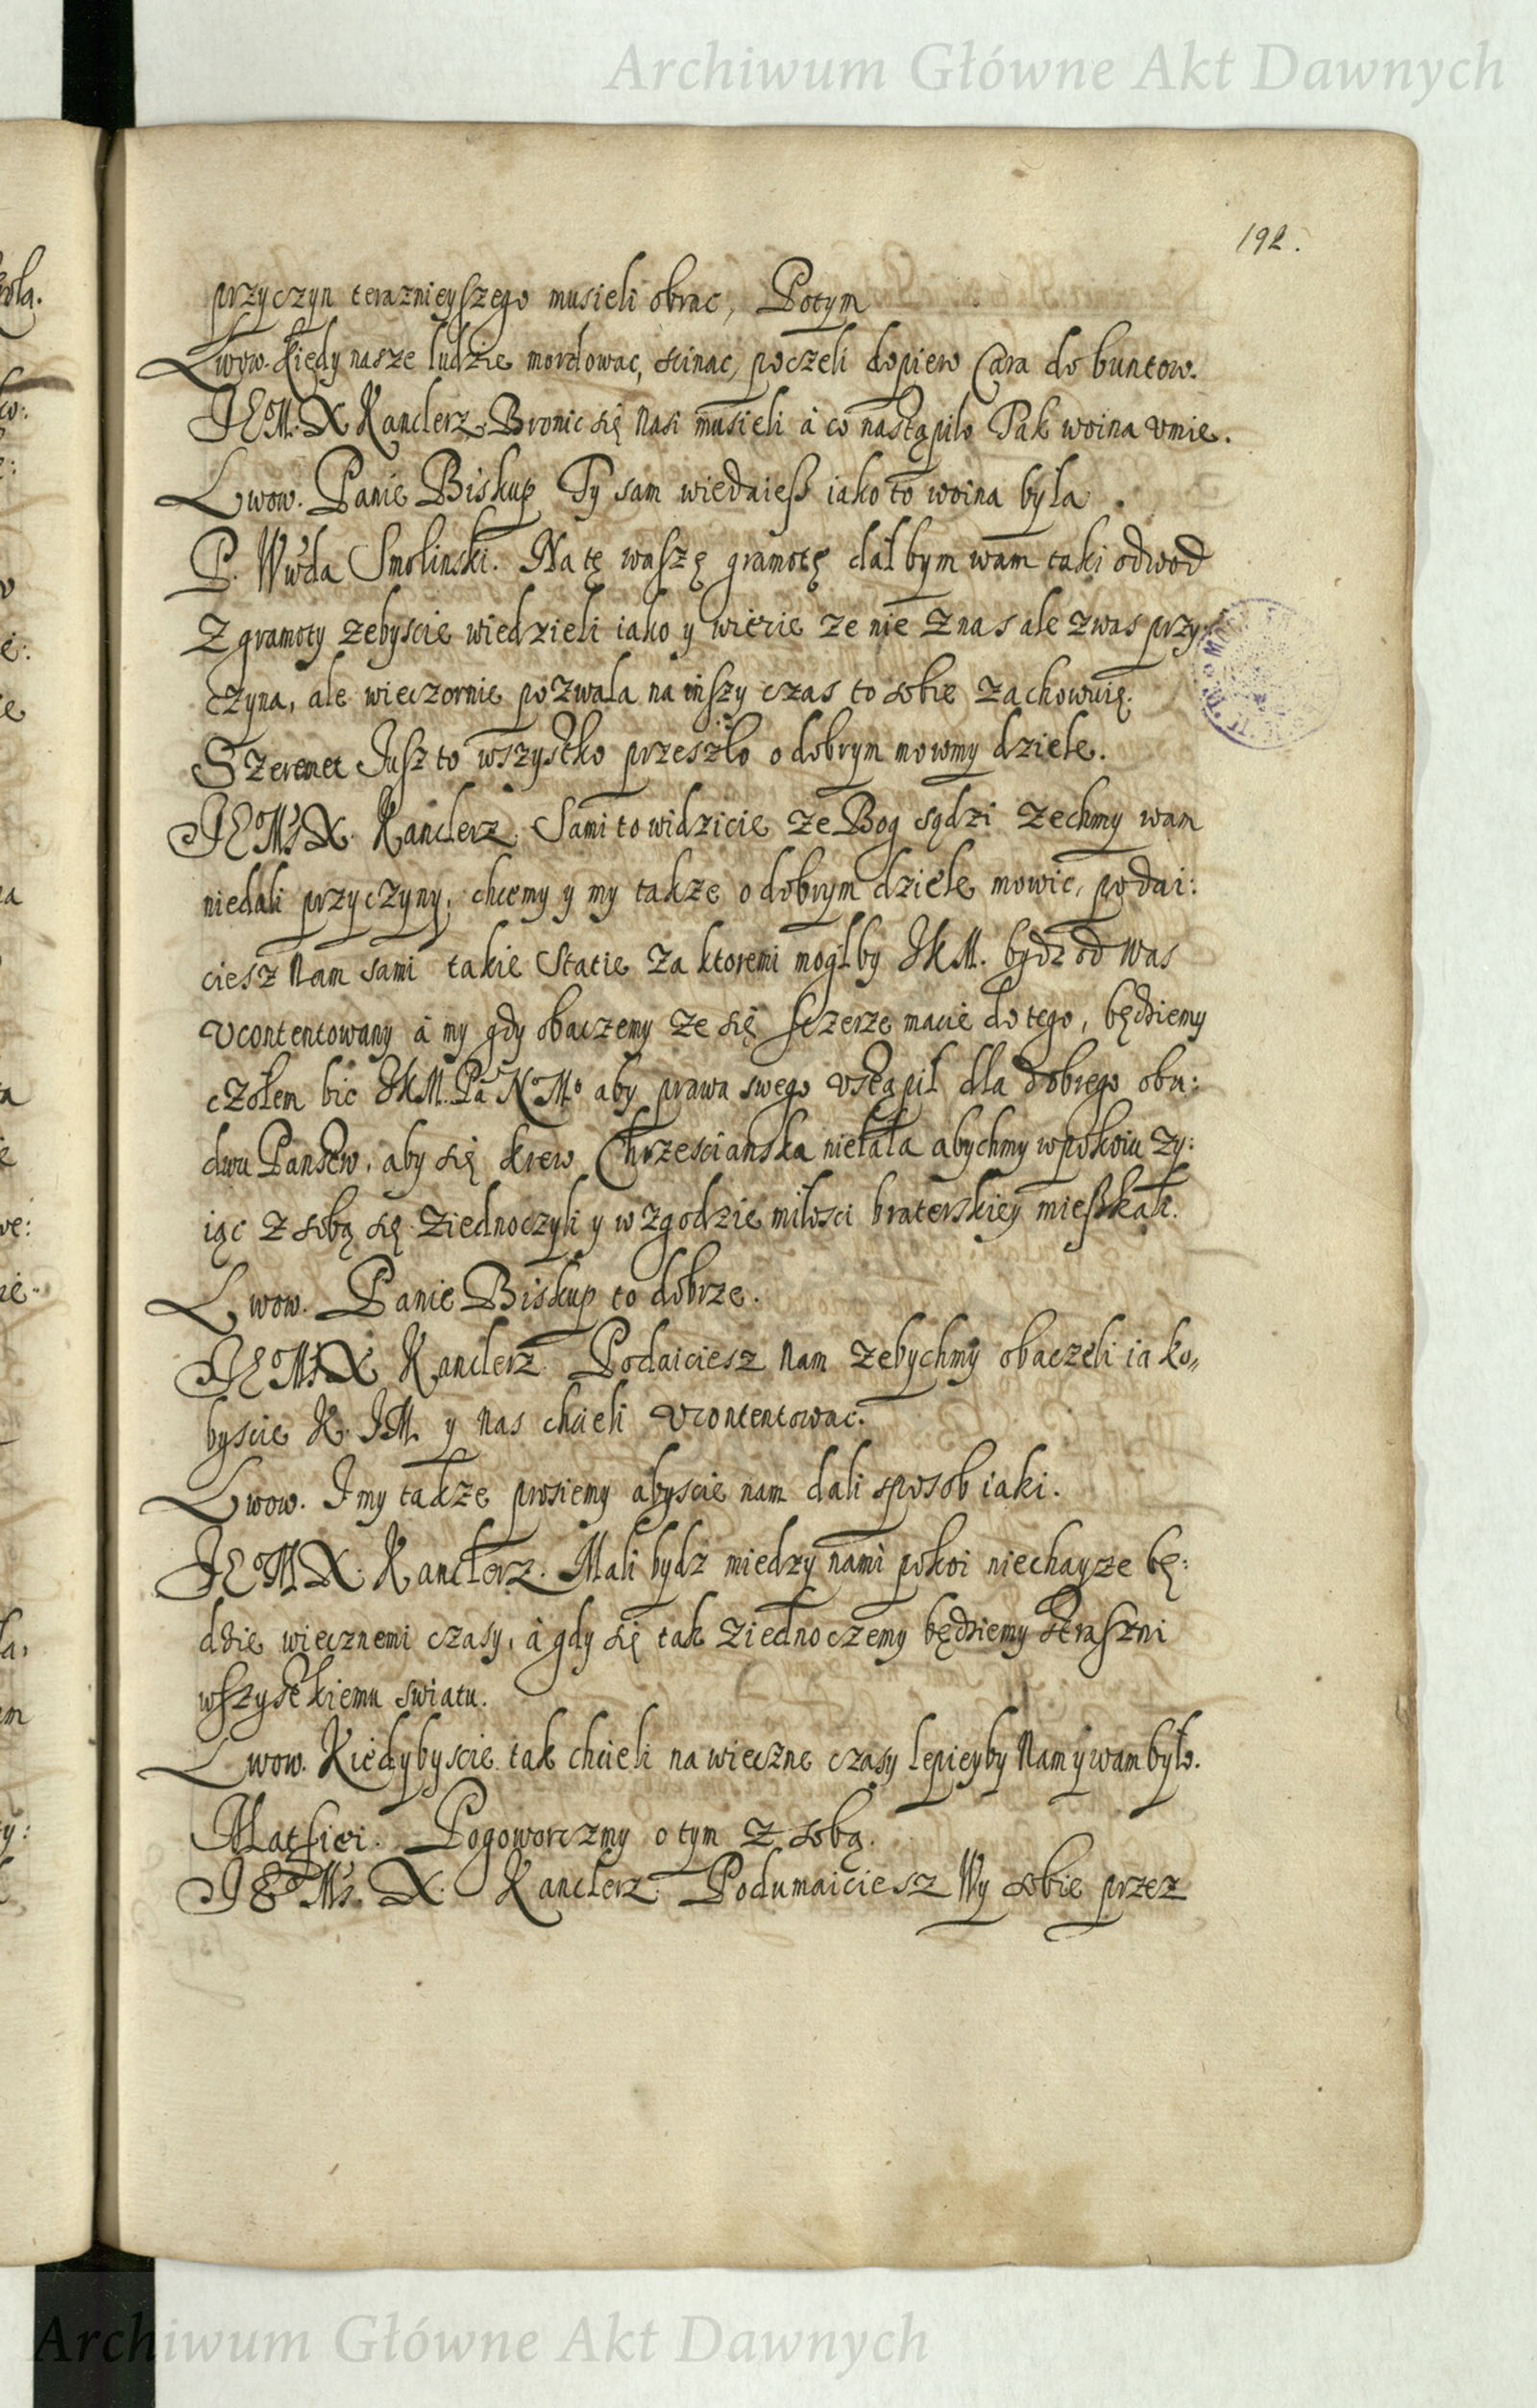 Archiwum Główne Akt Dawnych
192.
przyczyn teraznieyszego musieli obrac, Potym
Lwow. kiedy nasze ludzie mordowac, scinac, poczeli dopiero Cara do buntow.
JEM. X Kanclerz. Bronic się Nasi musieli à co nastąpiło Tak woina umie.
Lwow. Panie Biskup Ty sam wiedaiesz iako to woina była.
P. Wwda Smolinski. Na tę waszę gramotę dał bym wam taki odwod
Z gramoty zebyscie wiedzieli iako y wiecie ze nie z nas ale z was przy:
czyna, ale wieczornie pozwala na inszy czas to sobie zachowuię.
Szeremet Jusz to wszystko przeszło o dobrym mowmy dziele.
JEMs X. Kanclerz. Sami to widzicie ze Bog sądzi zechmy wam
niedali przyczyny, chcemy y my takze o dobrym dziele mowic, podai:
ciesz Nam sami takie Statie za ktoremi mogłby JKM. bydz od Was
Ucontentowany à my gdy obaczemy ze się sczerze macie do tego, będziemy
czołem bic JKM. Pa N. Mo aby prawa swego ustąpił dla dobrego obu:
dwu Panstw, aby się krew Chrzescianska nielała abychmy w pokoiu zy:
iąc z sobą się ziednoczyli y w zgodzie miłosci braterskiey mieszkali.
Lwow. Panie Biskup to dobrze.
JEMs X Kanclerz. Podaiciesz Nam zebychmy obaczeli iako„
byscie K. JM. y Nas chcieli Ucontentowac.
Lwow. I my takze prosiemy abyscie nam dali sposob iaki.
JEM. X. Kanclerz. Mali bydz miedzy nami pokoi niechayze bę:
dzie wiecznemi czasy, à gdy się tak ziednoczemy będziemy straszni
wszystkiemu swiatu.
Lwow. Kiedybyscie tak chcieli na wieczne czasy lepieyby Nam y wam było.
Matfiei. Pogoworczmy o tym z sobą.
JEMs. X. Kanclerz. Podumaiciesz Wy sobie przez
Archiwum Główne Akt Dawnych